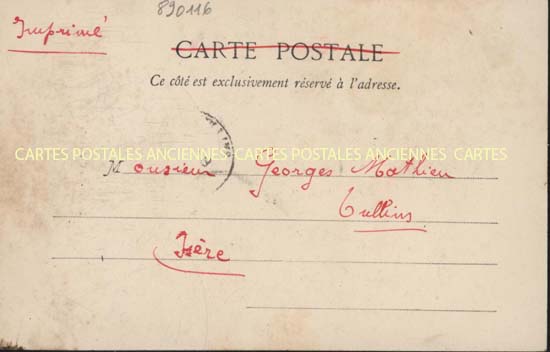 890116
Imprimé
CARTE POSTALE
Ce côté est exclusivement réservé à l'adresse.
CARTES POSTALES ANCIENNES CARTES POSTALES ANCIENNES CARTES
Monsieur Georges Mathieu
Tullins
Isère